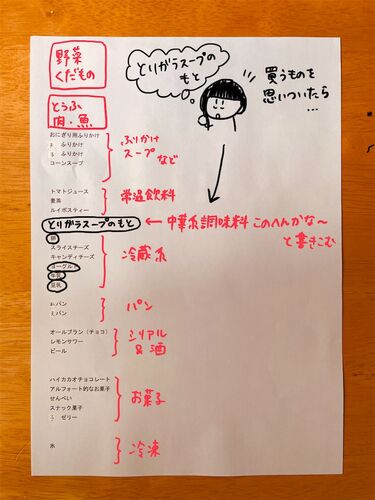 野菜
くだもの
とうふ
肉・魚
とりがらスープの
もと
買うものを
思いついたら
…
おにぎり用ふりかけ
ふりかけ
ふりかけ
コーンスープ
ふりかけ
スープ
など
トマトジュース
麦茶
ルイボスティー
常温飲料
とりがらスープのもと
← 中華系調味料 このへんかな〜
と書きこむ
卵
スライスチーズ
キャンディチーズ
ヨーグルト
牛乳
豆乳
冷蔵系
パン
パン
パン
オールブラン(チョコ)
レモンサワー
ビール
シリアル
&酒
ハイカカオチョコレート
アルフォート的なお菓子
せんべい
スナック菓子
ゼリー
お菓子
氷
冷凍